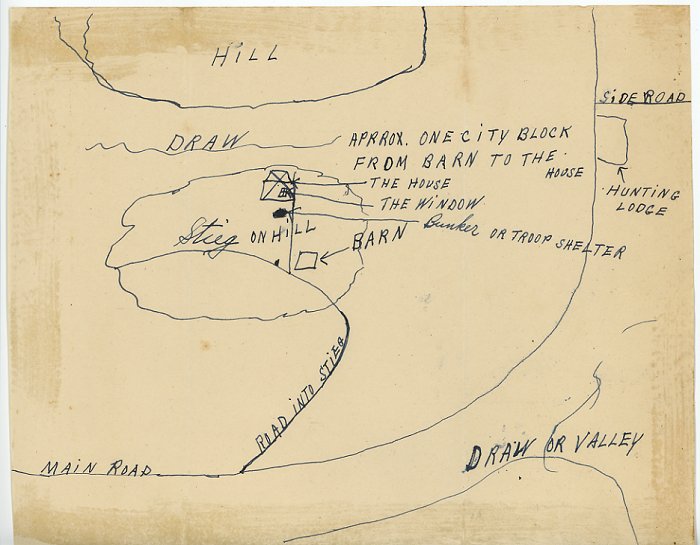 HILL
SIDE ROAD
DRAW
APRROX. ONE CITY BLOCK
FROM BARN TO THE
HOUSE
THE HOUSE
HUNTING
LODGE
THE WINDOW
Stieg ON HILL
BARN
Bunker OR TROOP SHELTER
ROAD INTO STIEG
DRAW OR VALLEY
MAIN ROAD